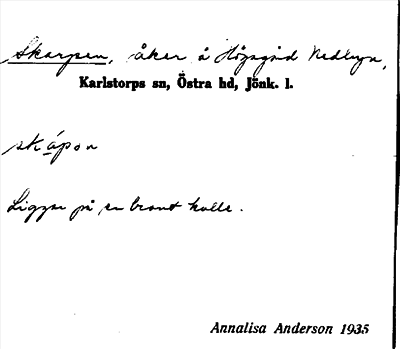 Skarpen, åker å Högagärd Nedbyn,
Karlstorps sn, Östra hd, Jönk. l.
skápon
Ligger på en brant kulle.
Annalisa Anderson 1935